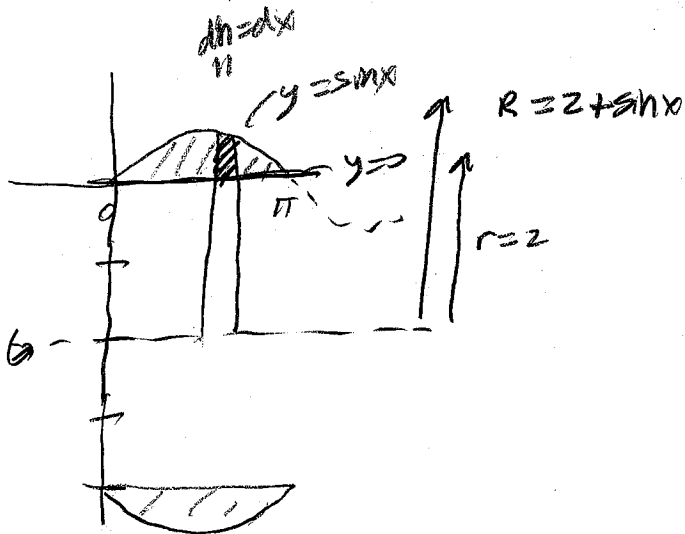 dh=dx
y=sinx
R=2+sinx
y=0
0
π
r=2